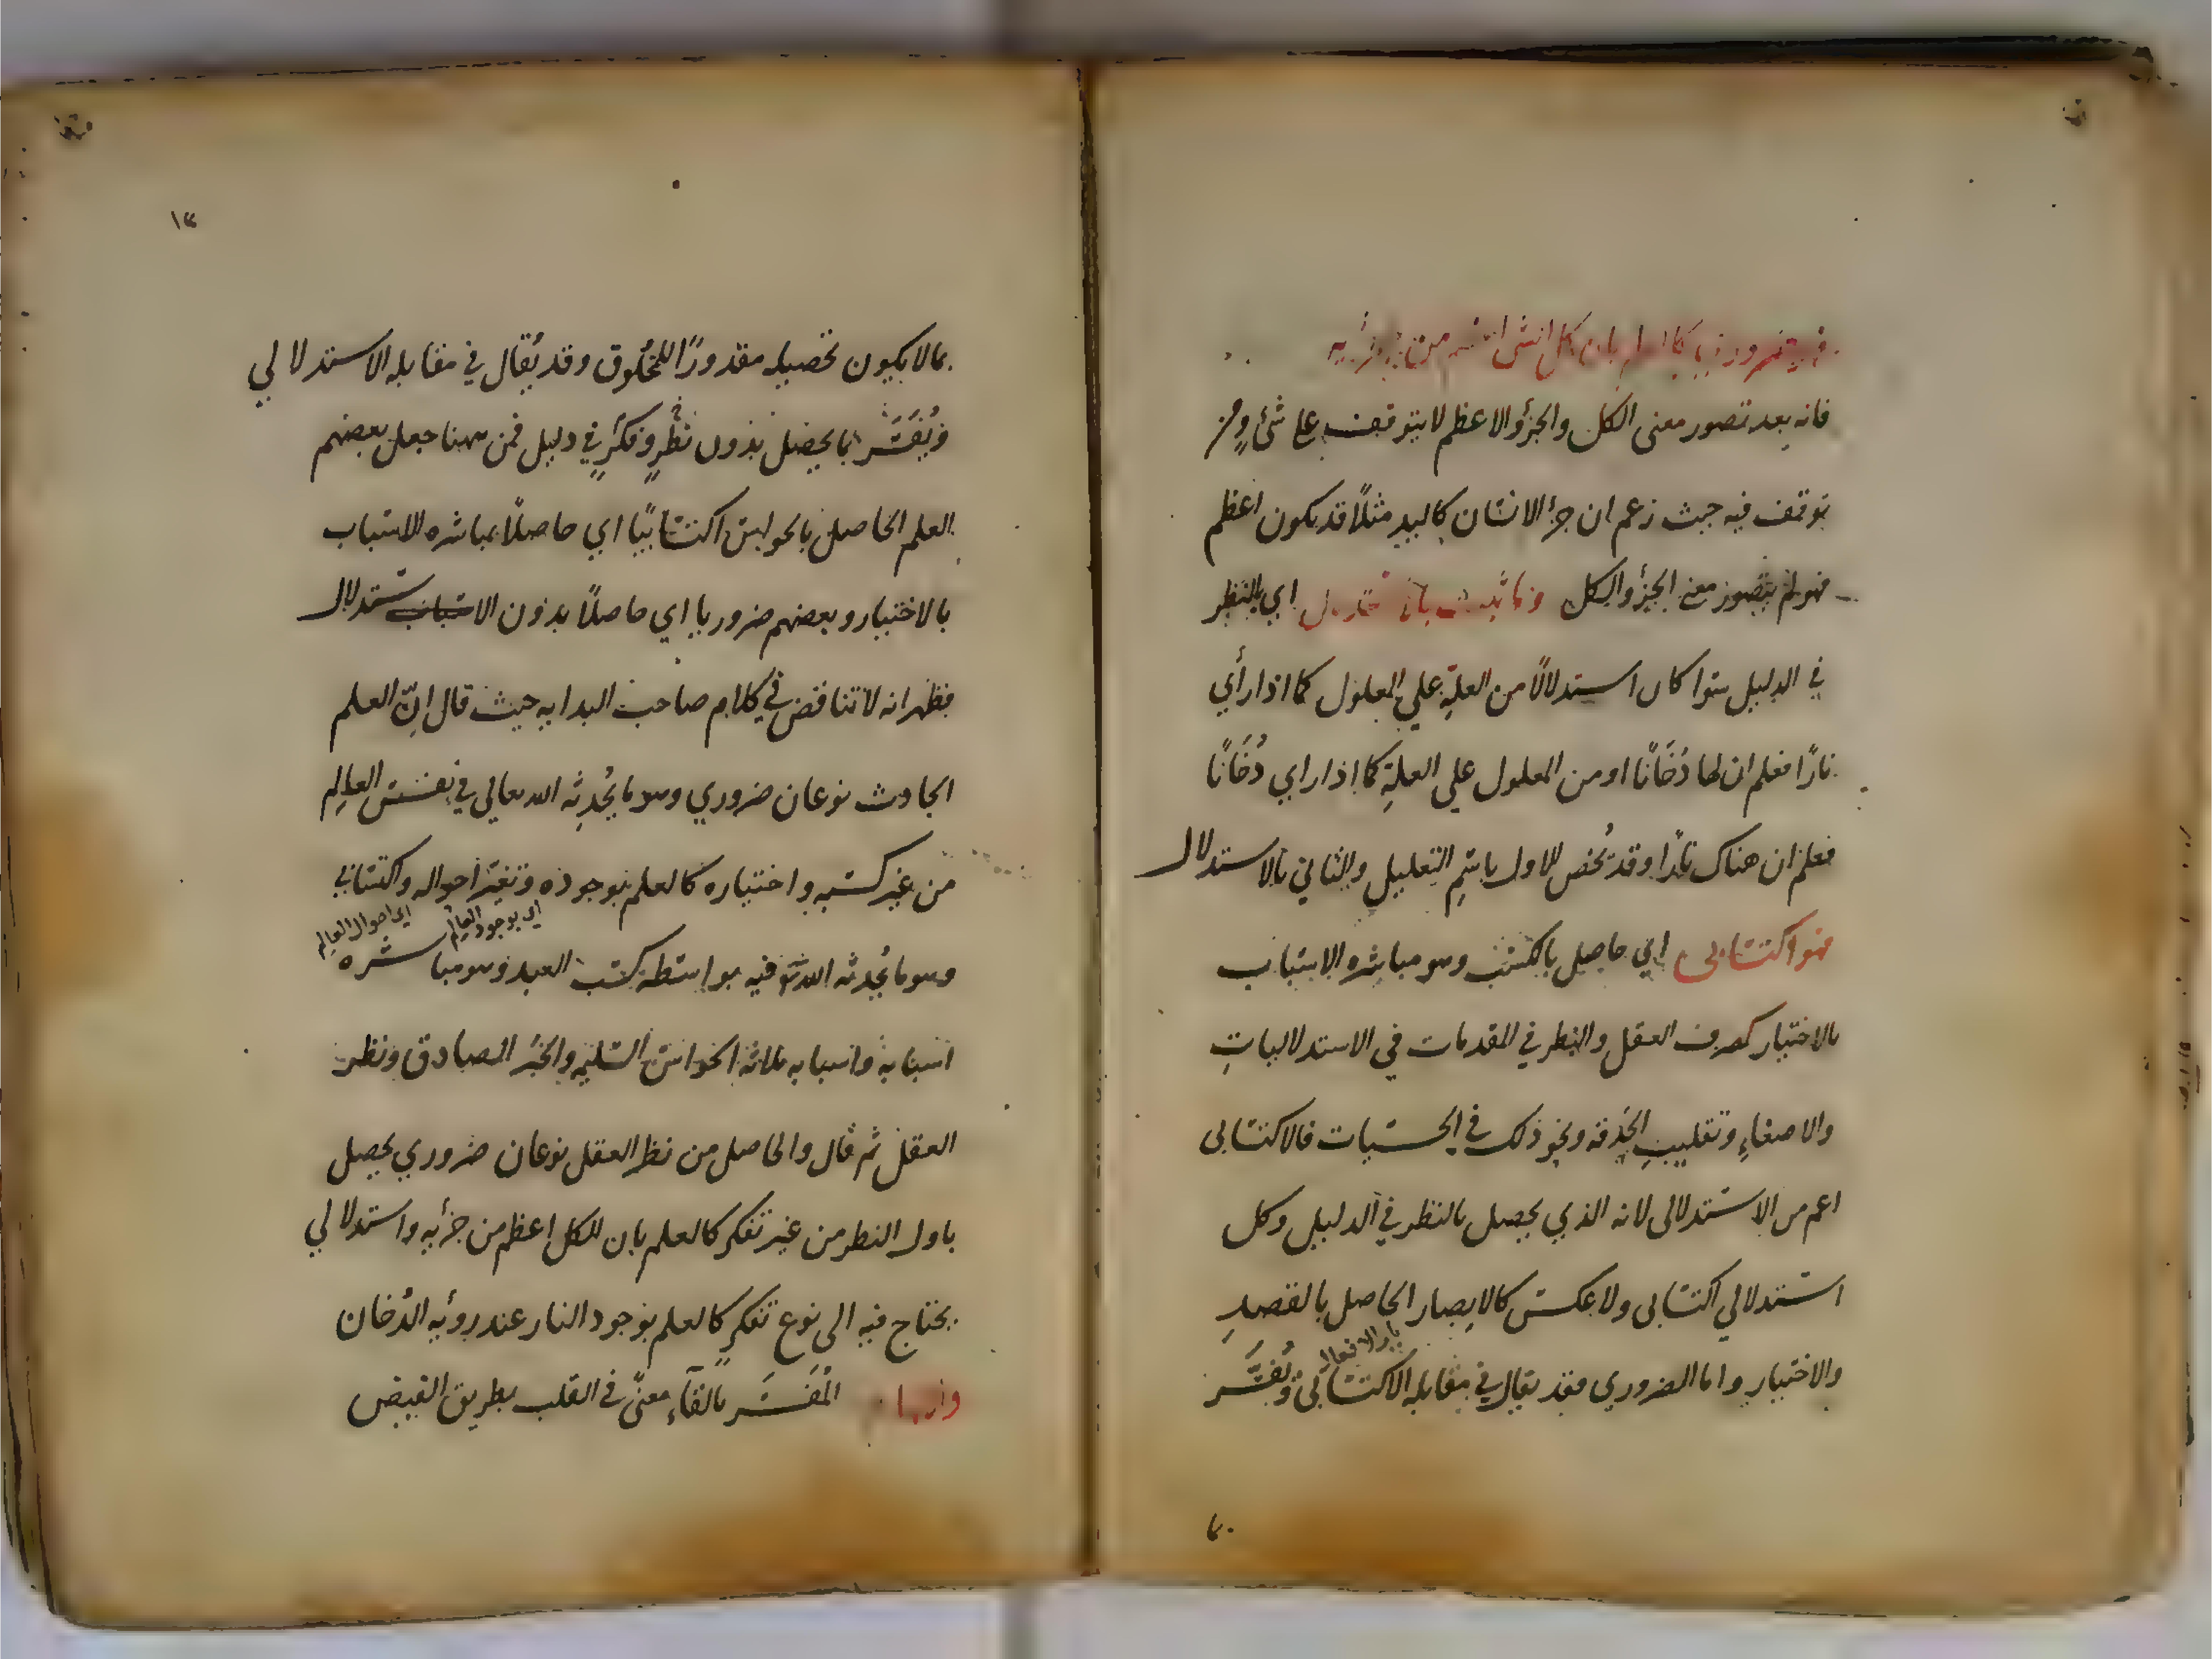 فهو ضروري كالعلم بان كل الشئ اعظم من جزئيه
فانه بعد تصور معنى الكل والجزؤ الاعظم لا يتوقف على شئ ومن
توقف فيه حيث زعم ان جزأ الانسان كاليد مثلًا قد يكون اعظم
فهو لم يتصور معنى الجزؤ والكل وما ثبت بالاستدلال اي بالنظر
في الدليل سوا كان استدلالًا من العلة علي المعلول كما اذا رأي
نارًا فعلم ان لها دُخَانًا او من المعلول علي العلةِ كما اذا راي دُخَانًا
فعلم ان هناك نارًا وقد يُخص الاول باسمِ التعليل والثاني بالاستدلال
فهو اكتسابى اي حاصل بالكسب وهو مباشره الاسباب
بالاختيار كصرف العقل والنظر في المقدمات في الاستدلالياتِ
والاصغاءِ وتقليبِ الحَدقه ونحو ذلك في الحسّيات فالاكتسابى
اعم من الاستدلالى لانه الذي يحصل بالنظر في الدليل وكل
استدلالي اكتسابى ولا عكس كالابصار الحاصل بالقصدِ
والاختيار واما الضروري فقد يقال في مقابله الاكتسابى ويُفَسَّر
بما
١٢
بما لا يكون تحصيله مقدورًا للمخلُوق وقد يُقال في مقابله الاستدلالي
ويُفَسَّر بما يحصل بدون نظرٍ وفكرٍ في دليل فمن ههنا جعل بعضهم
العلم الحاصل بالحواس اكتسابيًا اي حاصلًا بمباشره الاسباب
بالاختيار وبعضهم ضروريا اي حاصلًا بدون الاستدلال
فظهر انه لا تناقض في كلام صاحب البدايه حيث قال انّ العلم
الحادث نوعان ضروري وهو ما يُحْدِثه الله تعالي في نفس العالِم
من غير كسبه واختياره كالعلم بوجوده وتغير احواله واكتسابي
اي بوجود العالم اي احوال العالم
وهو ما يُحدثه الله تع فيه بواسطة كسب العبد وهو مباشره
اسبابه واسبابه ثلاثة الحواس السليمه والخبر الصادق ونظر
العقل ثم قال والحاصل من نظر العقل نوعان ضروري يحصل
باول النظر من غير تفكر كالعلم بان الكل اعظم من جزأيه واستدلالي
يحتاج فيه الى نوع تفكرٍ كالعلم بوجود النار عند رويه الدُخان
والهام المُفَسَّر بالقآء معنًى في القلب بطريق الفيض